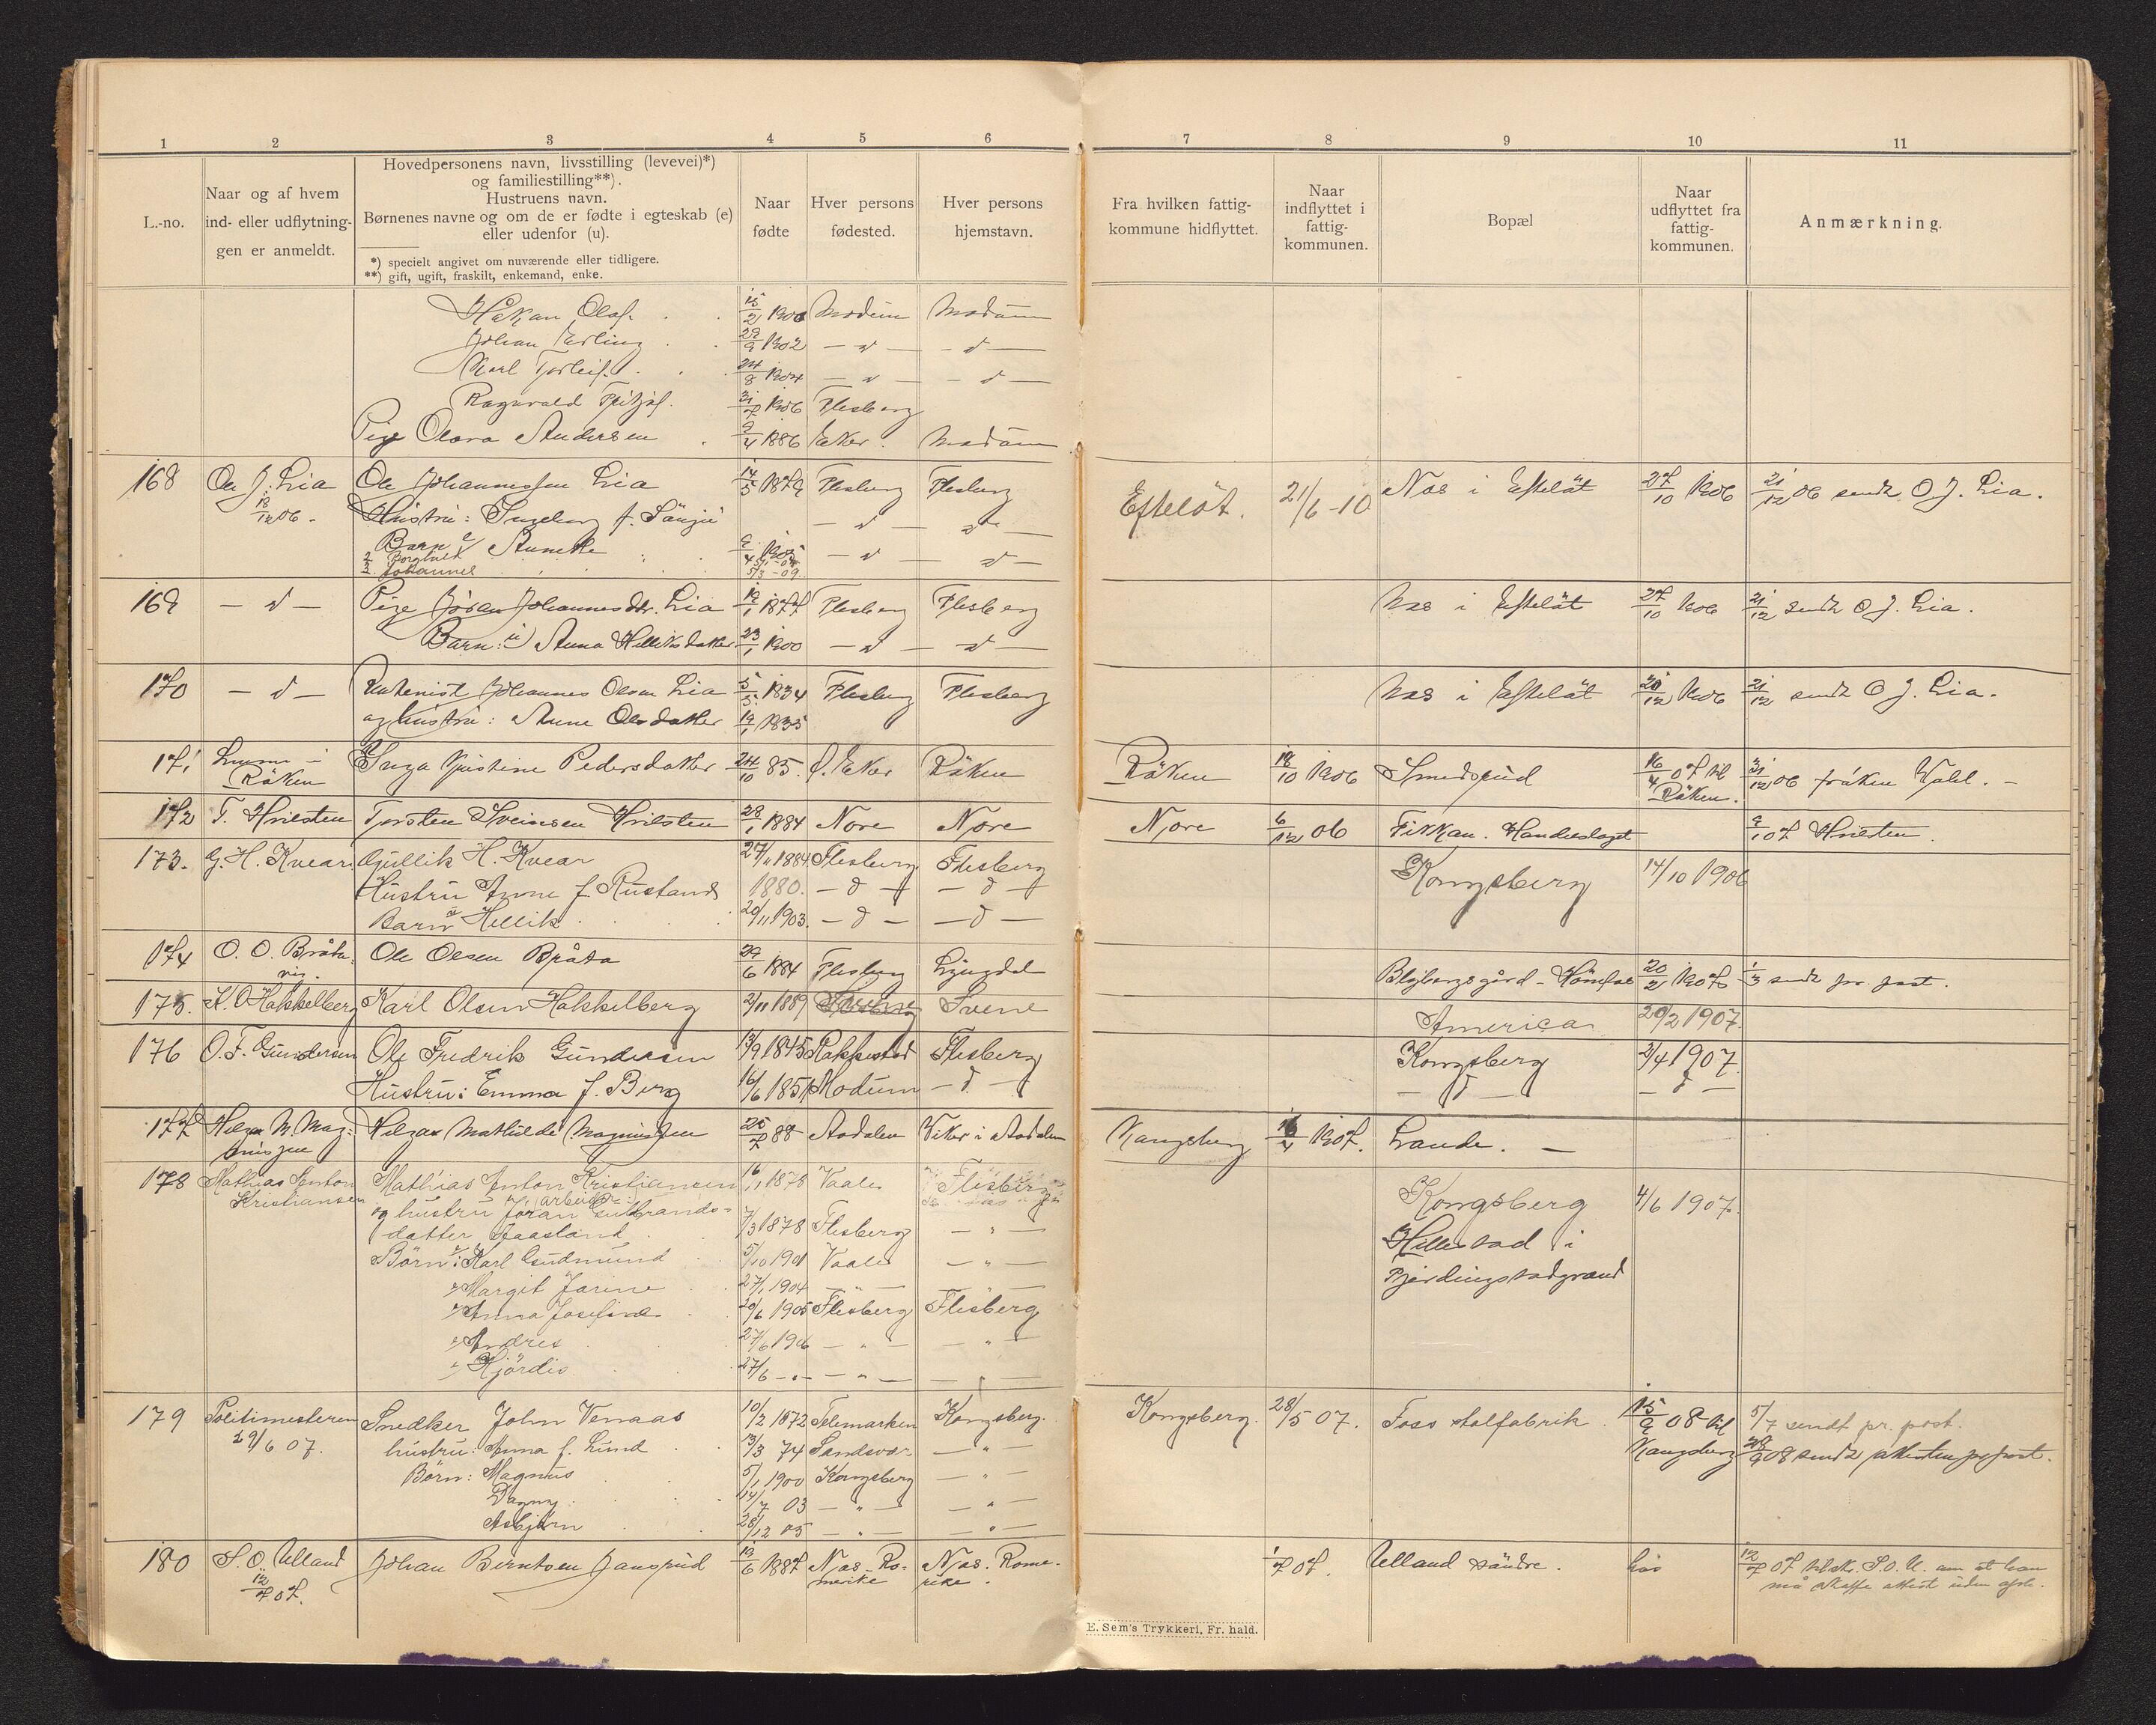 1 2 3 4 5 6 7 8 9 10 11
L.-no.
Naar og af hvem
ind- eller udflytning-
gen er anmeldt.
Hovedpersonens navn, livsstilling (levevei)*)
og familiestilling**).
Hustruens navn.
Børnenes navne og om de er fødte i egteskab (e)
eller udenfor (u).
*) specielt angivet om nuværende eller tidligere.
**) gift, ugift, fraskilt, enkemand, enke.
Naar
fødte
Hver persons
fødested.
Hver persons
hjemstavn.
Fra hvilken fattig-
kommune hidflyttet.
Naar
indflyttet i
fattig-
kommunen.
Bopæl
Naar
udflyttet fra
fattig-
kommunen.
Anmærkning.
Håkan Olaf. 15/2 1900 Modum Modum
Johan Erling 29/9 1902 — d — — d —
Karl Torleif. 24/8 1904 — d — — d —
Ragnvald 31/7 1906 Flesberg
Pige Olava Andersen 9/4 1886 Eker. Modum
168 Ole J. Lia Ole Johannessen Lia 14/5 1879 Flesberg Flesberg Efteløt. 21/6-10 Næs i Efteløt 27/10 1906 21/12 06 sendt O. J. Lia.
18/12 06. Hustru: Ingeborg f. — d — — d —
Barn e/ — d — — d —
2 Borghild
3. Johannes 5/3 - 09.
169 — d — Pige Jöran Johannesdtr. Lia 19/1 1877 Flesberg Flesberg Næs i Efteløt 27/10 1906 21/12 sendt O J. Lia.
Barn: u) Anna Helliksdatter 23/1 1900 — d — — d —
170 — d — Johannes Olsen Lia 5/5 1834 Flesberg Flesberg Næs i Efteløt 20/12 1906 21/12 sendt O J. Lia.
og hustru: Anne Olsdatter 19/1 1835
171 i Inga Kristine Pedersdatter 24/10 85. Ø. Eker Röken Röken 18/10 1906 Smedsrud 16/4 07 til 31/12 06 fröken
Röken Röken.
172 T. Hvilsten Torsten Sveinsen Hvilsten 28/1 1884 Nore Nore Nore 6/12 06 Fikkan. Handelslaget 9/1 07 Hvilsten.
173. G. H. Kvear. Gullik H. Kvear 27/11 1884 Flesberg Flesberg Kongsberg 14/10 1906
Hustru Anne f. Rustand 1880. — d — — d —
Barn e Hellik 20/11 1903. — d — — d —
174 O. O. Bråta. Ole Olsen Bråta 29/6 1884 Flesberg Lyngdal 20/2 1907 1/3 sendt pr post.
175. K. O Hakkelberg Karl Olsen Hakkelberg 2/11 1889 Svene America 20/2 1907.
176 O. F. Gundersen Ole Fredrik Gundersen 13/9 1845 Rakkestad Flesberg Kongsberg 2/4 1907.
Hustru: Emma f. Berg 16/6 1851 Modum — d — — d — — d —
177 Helga M. Mag- Helga Mathilde Magnussen 25/7 88 Aadalen Viker i Aadalen Kongsberg 16/4 1907. Lande. —
nussen
178 Mathias Anton Mathias Anton Kristiansen 16/1 1878 Vaale Flesberg Kongsberg 4/6 1907.
Kristiansen (arbeider)
og hustru Jöran Gulbrands-
datter Aaasland 7/3 1878 Flesberg — " — Hillestad i
Börn e: Karl Gudmund 5/10 1901 Vaale — " —
e/ Margit Jarine 27/1 1904 — " — — " —
e/ Anna Josefine 20/6 1905 Flesberg Flesberg
e/ Andres 27/6 1906 — " — — " —
e/ Hjördis 27/6 — " — — " — — " —
179 Politimesteren Snedker John Venaas 10/2 1872 Telemarken Kongsberg. Kongsberg. 28/5 07. Foss stolfabrik 15/9 08 til 5/7 sendt pr. post.
29/6 07. hustru: Anna f. Lund 13/3 74 Sandsvær — " — Kongsberg 28/9 08 sendt attesten pr post.
Börn: Magnus 5/1 1900 Kongsberg — " —
Dagny 14/7 03 — " — — " —
Asbjörn 28/12 05 — " — — " —
180 S. O. Ulland Johan Berntsen Jansrud 13/6 1887 Næs. Ro- Næs. Rome- 1/7 07. Ulland söndre. 12/7 07 tilsk. S. O. U. om at han
12/7 07. merike rike. må skaffe attest uden
E. Sem's Trykkeri, Fr. hald.